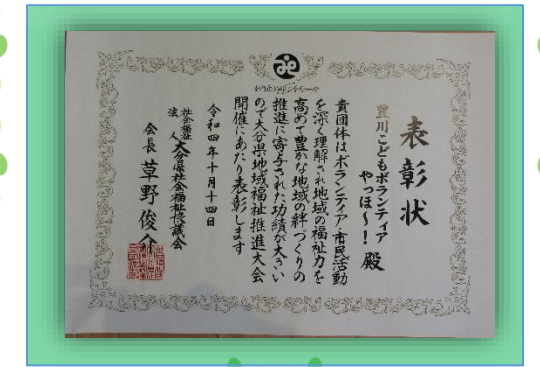 表彰状
豊川こどもボランティア
やっほ～！ 殿
貴団体はボランティア・市民活動
を深く理解され地域の福祉力を
高めて豊かな地域の絆づくりの
推進に寄与された功績が大きい
ので大分県地域福祉推進大会
開催にあたり表彰します
令和四年十月十四日
社会福祉
法人
大分県社会福祉協議会
会長 草野俊介